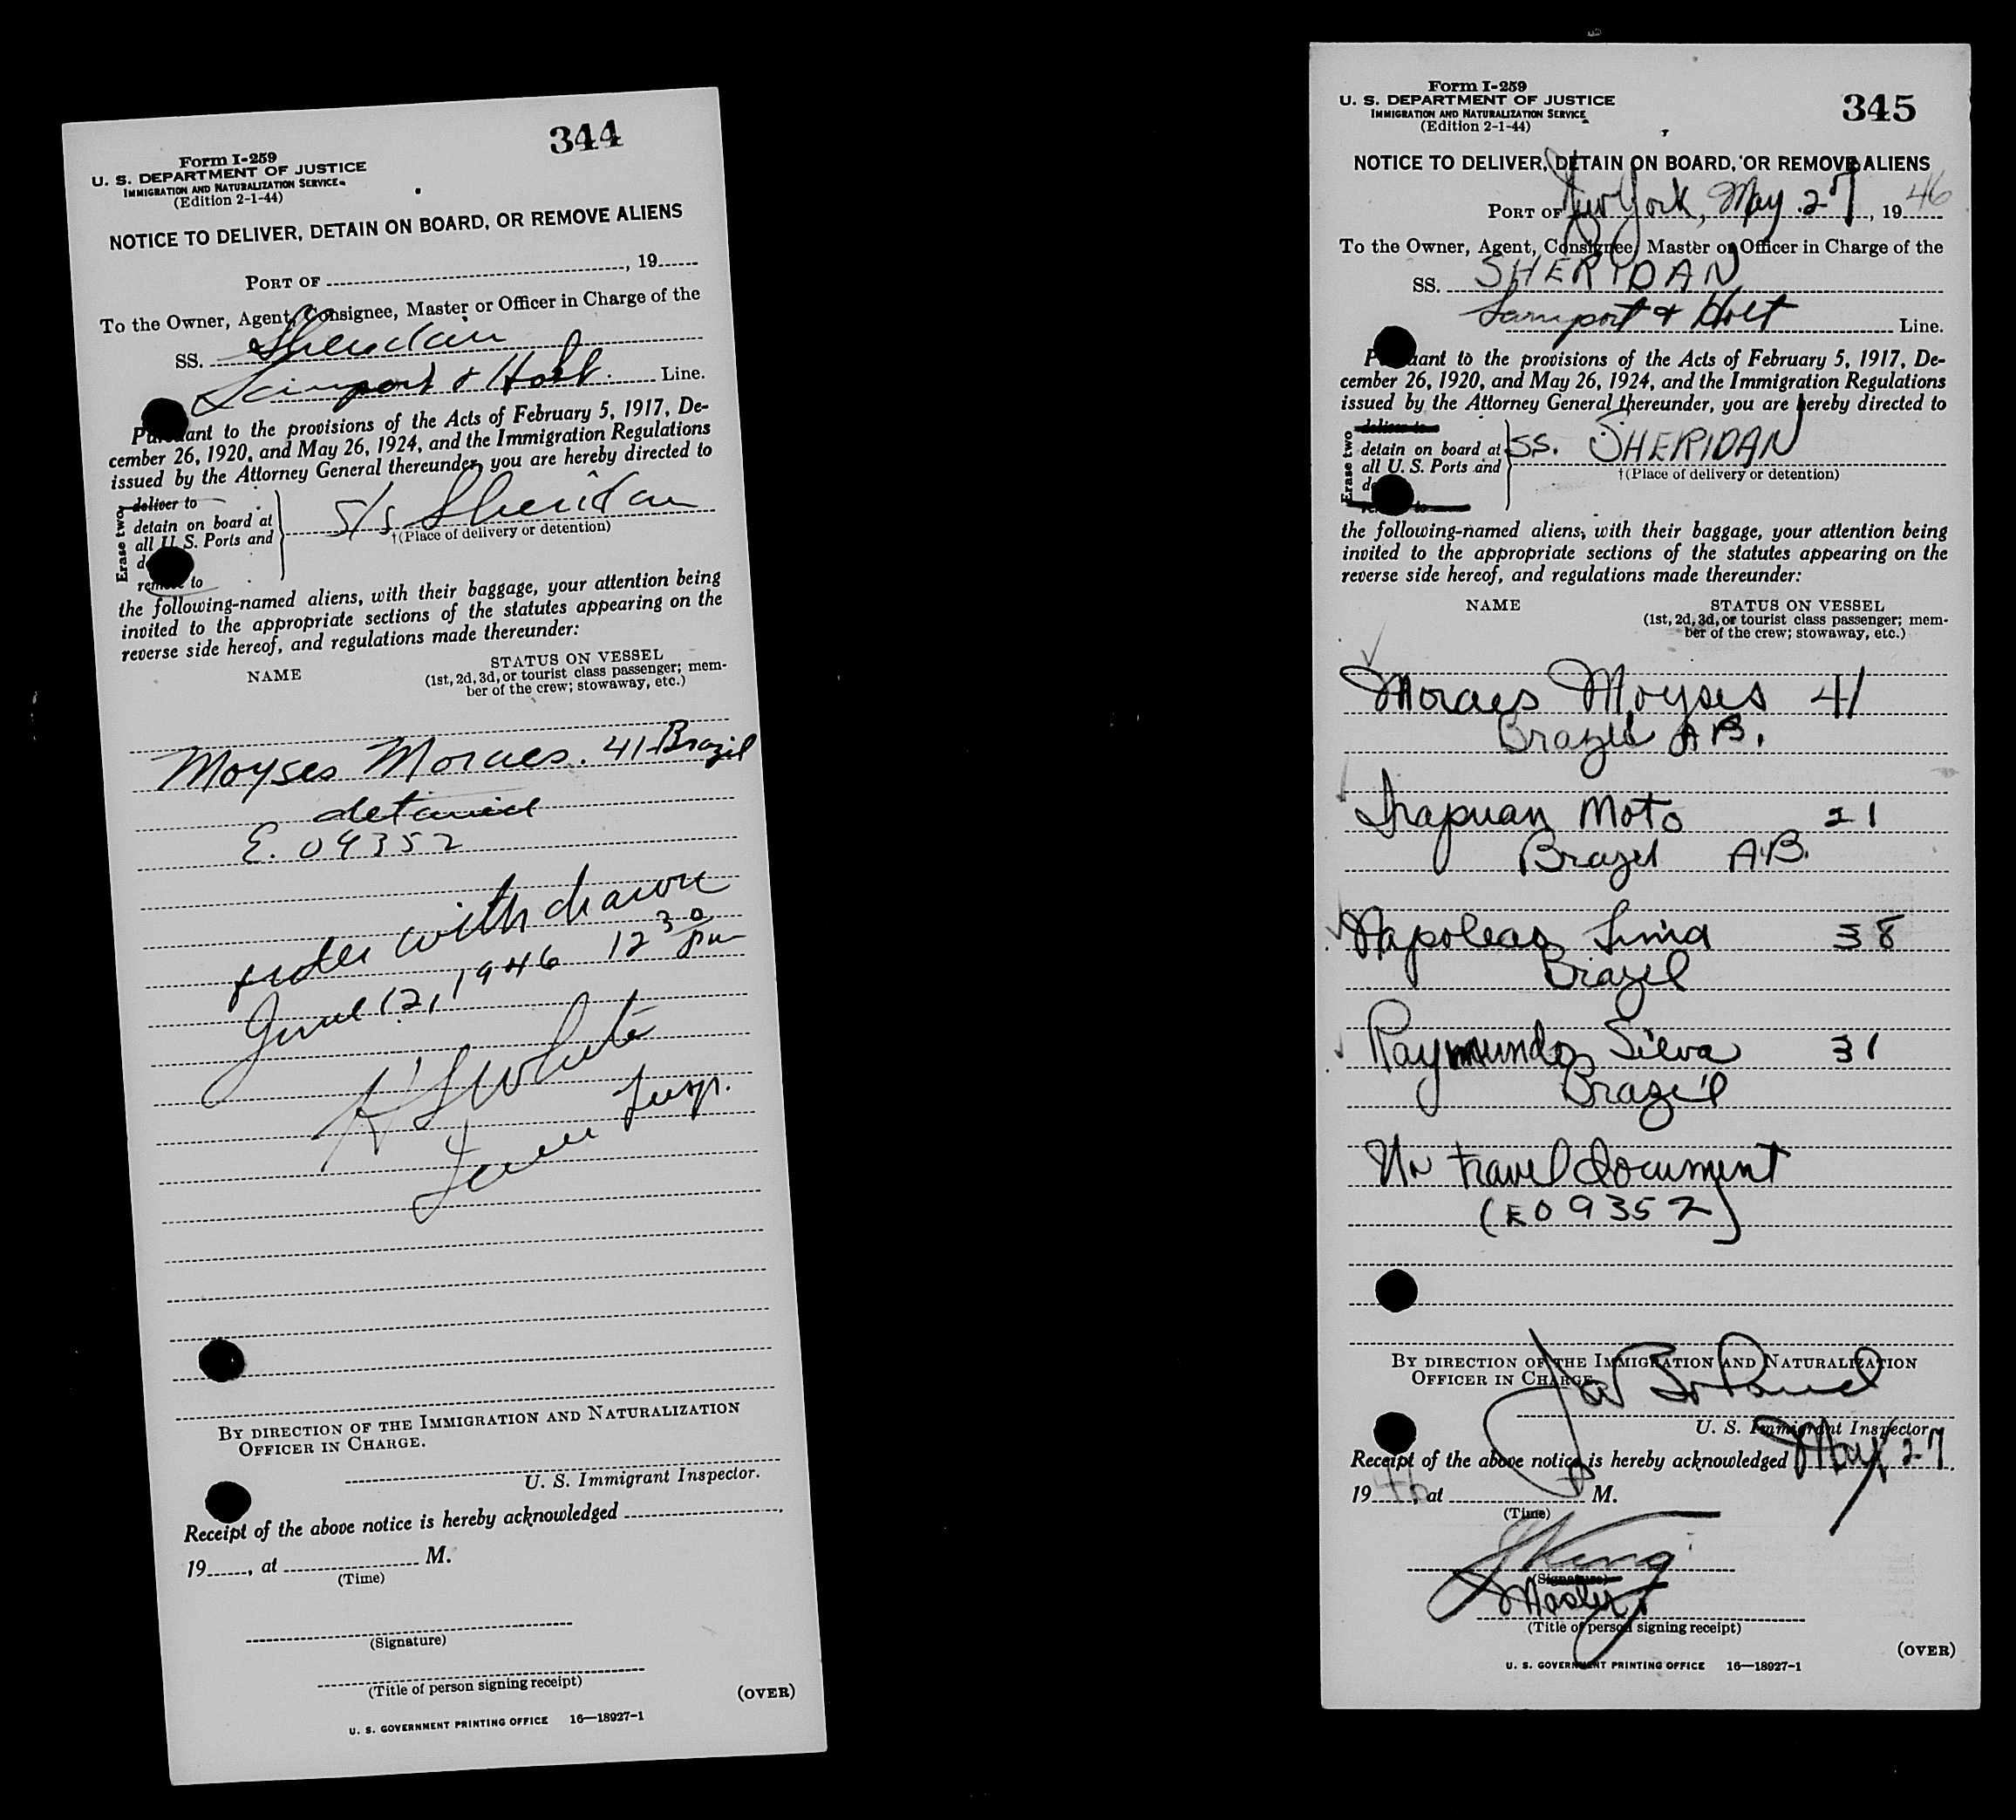 344
Form I-259
U. S. DEPARTMENT OF JUSTICE
IMMIGRATION AND NATURALIZATION SERVICE
(Edition 2-1-44)
NOTICE TO DELIVER, DETAIN ON BOARD, OR REMOVE ALIENS
PORT OF , 19
To the Owner, Agent, Consignee, Master or Officer in Charge of the
SS. Sheridan
Lamport & Holt. Line.
Pursuant to the provisions of the Acts of February 5, 1917, De-
cember 26, 1920, and May 26, 1924, and the Immigration Regulations
issued by the Attorney General thereunder, you are hereby directed to
Erase two
deliver to
detain on board at
all U. S. Ports and
remove to
S/S Sheridan
†(Place of delivery or detention)
the following-named aliens, with their baggage, your attention being
invited to the appropriate sections of the statutes appearing on the
reverse side hereof, and regulations made thereunder:
NAME
STATUS ON VESSEL
(1st, 2d, 3d, or tourist class passenger; mem-
ber of the crew; stowaway, etc.)
Moyses Moraes. 41 Brazil
detained
E. 09352
order withdrawn
June 12, 1946 12 30 pm
White
Insp.
BY DIRECTION OF THE IMMIGRATION AND NATURALIZATION
OFFICER IN CHARGE.
U. S. Immigrant Inspector.
Receipt of the above notice is hereby acknowledged
19 , at M.
(Time)
(Signature)
(Title of person signing receipt)
(OVER)
U. S. GOVERNMENT PRINTING OFFICE 16—18927-1
345
Form I-259
U. S. DEPARTMENT OF JUSTICE
IMMIGRATION AND NATURALIZATION SERVICE
(Edition 2-1-44)
NOTICE TO DELIVER, DETAIN ON BOARD, OR REMOVE ALIENS
PORT OF New York, May 27, 1946
To the Owner, Agent, Consignee, Master or Officer in Charge of the
SS. SHERIDAN
Lamport & Holt Line.
Pursuant to the provisions of the Acts of February 5, 1917, De-
cember 26, 1920, and May 26, 1924, and the Immigration Regulations
issued by the Attorney General thereunder, you are hereby directed to
Erase two
deliver to
detain on board at
all U. S. Ports and
SS. SHERIDAN
†(Place of delivery or detention)
the following-named aliens, with their baggage, your attention being
invited to the appropriate sections of the statutes appearing on the
reverse side hereof, and regulations made thereunder:
NAME
STATUS ON VESSEL
(1st, 2d, 3d, or tourist class passenger; mem-
ber of the crew; stowaway, etc.)
Moraes Moyses 41
Brazil A B.
Irapuan Moto 21
Brazil A.B.
Napoleao Lima 38
Brazil
Raymundo Silva 31
Brazil
No travel document
(E09352)
BY DIRECTION OF THE IMMIGRATION AND NATURALIZATION
OFFICER IN CHARGE.
U. S. Immigrant Inspector.
Receipt of the above notice is hereby acknowledged May 27
1946, at M.
(Time)
King
(Signature)
Master.
(Title of person signing receipt)
(OVER)
U. S. GOVERNMENT PRINTING OFFICE 16—18927-1